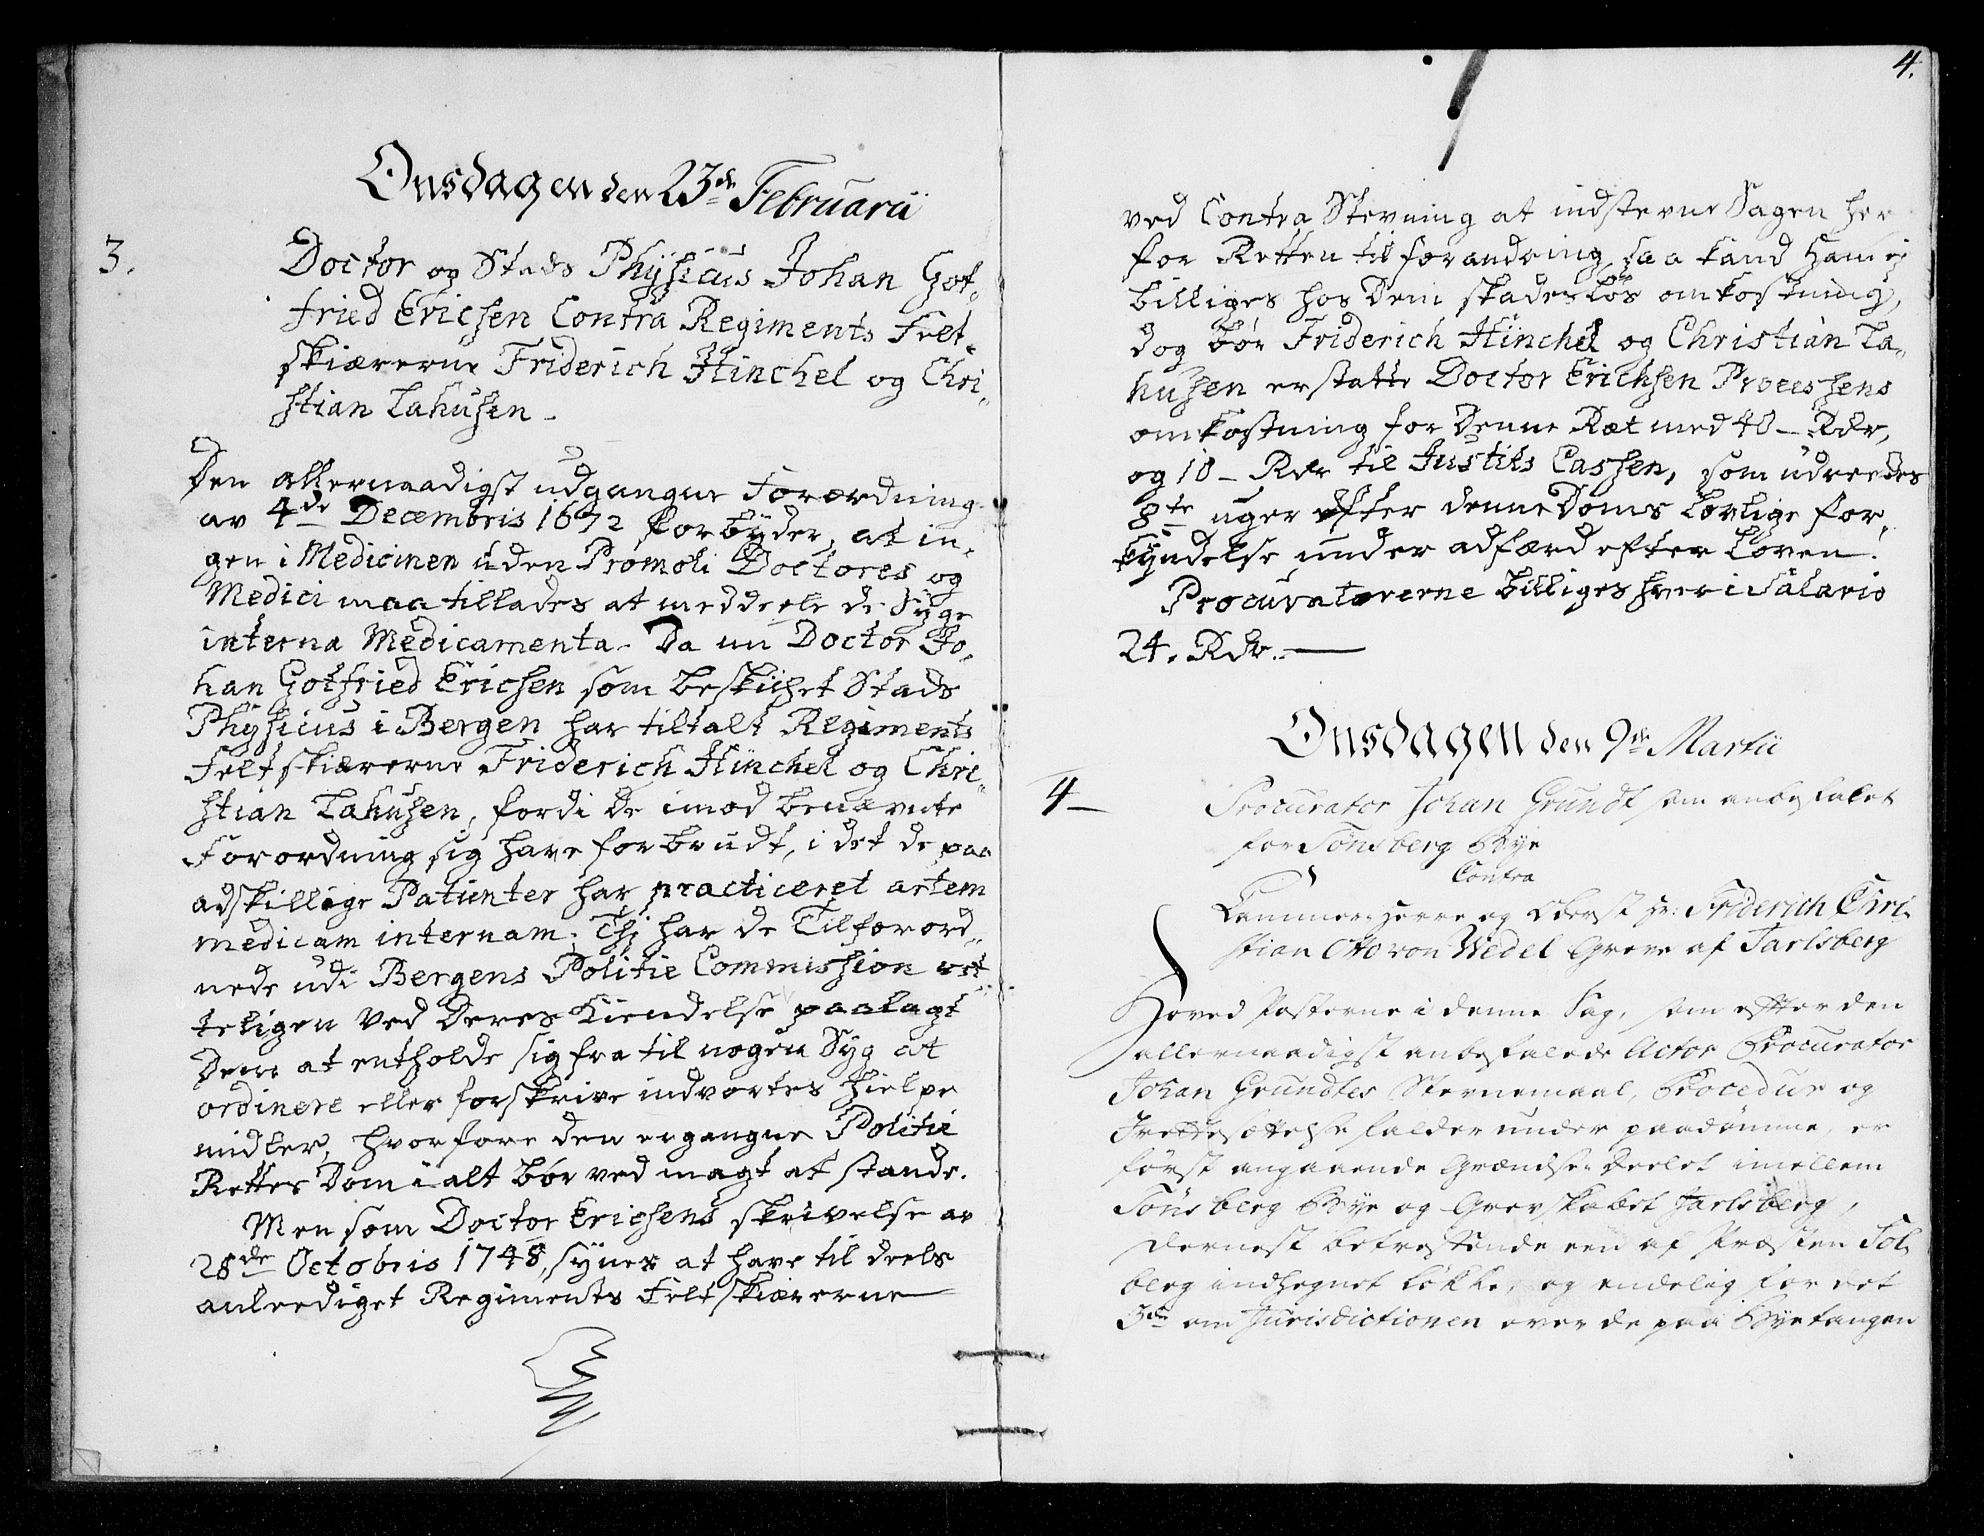 Onsdagen den 23de Februarii
3.
Doctor og Stads Physicus Johan Got-
fried Ericsen Contra Regiments Felt-
skiærerne Friderich Hinchel og Chri-
stian Lahusen.
Den allernaadigst udgangne Forordning
av 4de Decembris 1672 forbyder, at in-
gen i Medicinen uden Promoti Doctores og
Medici maa tillades at meddeele de Syge
interna Medicamenta. Da nu Doctor Jo-
han Gotfried Ericsen som beskichet Stads
Physicus i Bergen har tiltalt Regiments
Feltskiærerne Friderich Hinchel og Chri-
stian Lahusen, fordi de imod benævnte
Forordning sig have forbrudt, i det de paa
adskillige Patienter har practiceret artem
medicam internam. Thj har de Tilforord-
nede udi Bergens Politie Commission ret-
teligen ved Deres Kiendelse paalagt
Dem at entholde sig fra til nogen Syg at
ordinere eller forskrive indvortes Hielpe
midler, hvorfore den ergangne Politie
Rettes Dom i alt bør ved magt at stande.
Men som Doctor Ericsens skrivelse av
28de Octobris 1748, synes at have til deels
anleediget Regiments Feltskiærerne
4.
ved Contra Stevning at indstevne Sagen her
for Retten til forandring, saa kand Ham ej
billiges hos Dem skadesløs omkostning,
dog bør Friderich Hinchel og Christian La-
husen erstatte Doctor Erichsen Processens
omkostning for Denne Ræt med 40 - Rdr,
og 10 - Rdr til Justits Cassen, som udreedes
8te uger efter denne Doms Lovlige for-
kyndelse under adfærd efter Loven.
Procuratorerne billiges hver i Salario
24. Rdr.
Onsdagen den 9de Martii
4
Procurator Johan Grundt, som anbefalet
for Tønsberg Bye
Contra
Kammer-Herre og Oberst Hr: Friderich Chri-
stian Otto von Wedel Greve af Jarlsberg
Hoved Posterne i denne Sag, som efter den
allernaadigst anbefalede Actor Procurator
Johan Grundtes Stevnemaal, Procedur og
Irettesættelse falder under paadømme, er
først angaaende Grændse-Deelet imellem
Tønsberg Bye og Grevskabet Jarlsberg,
dernest betreffende een af Præsten Sol-
berg indhegnet Løkke, og endelig for det
3de om Jurisdictionen over de paa Byetangen